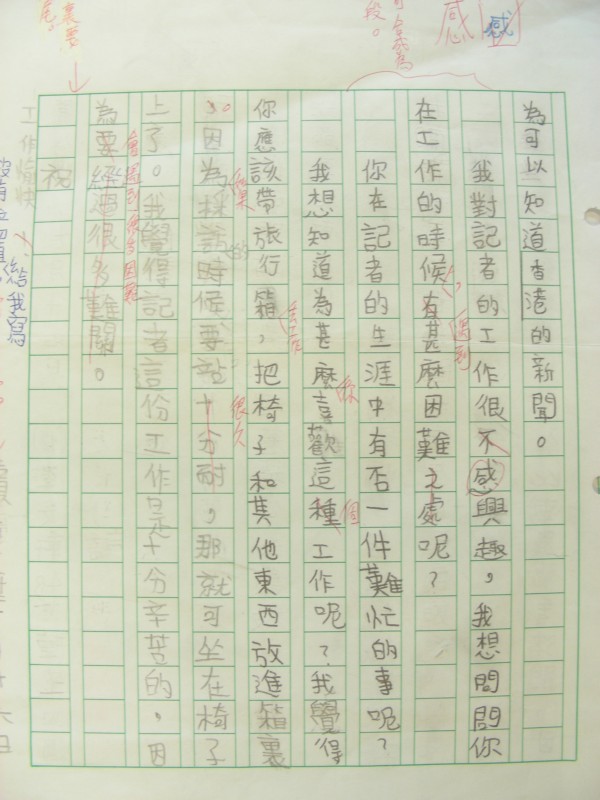 為可以知道香港的新聞。
我對記者的工作很不感興趣，我想問問你
在工作的時候有甚麼困難之處呢？
你在記者的生涯中有否一件難忙的事呢？
我想知道為甚麼喜歡這種工作呢？我覺得
你應該帶旅行箱，把椅子和其他東西放進箱裏
因為採訪時候要站十分耐，那就可坐在椅子
上了。我覺得記者這份工作是十分辛苦的，因
為要經過很多難關。
祝
工作愉快
給我寫
感
感
段。
遇到
你
個
很久
會遇到很多困難
上